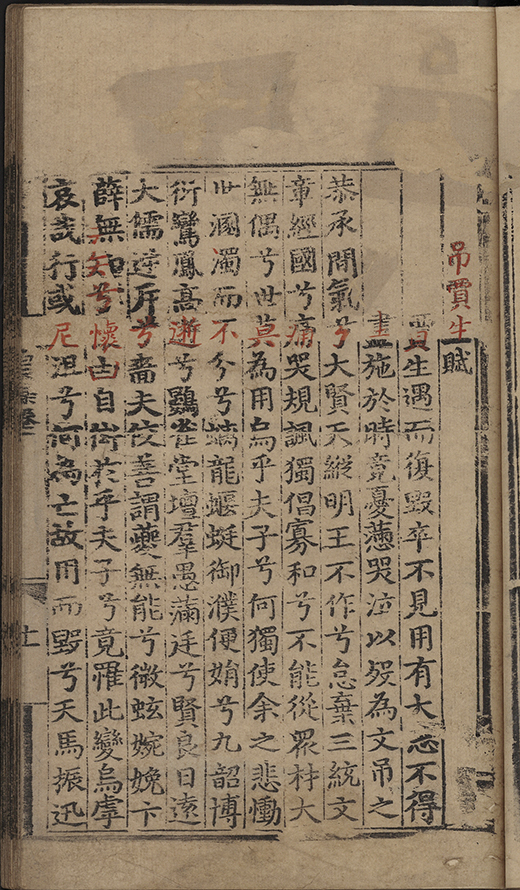 吊賈生賦
賈生遇而復毀卒不見用有大志不得
盡施於時竟憂懣哭泣以歿為文吊之
恭承間氣兮大賢天縱明王不作兮怠棄三統文
章經國兮痛哭規諷獨倡寡和兮不能從眾材大
無偶兮世莫為用烏乎夫子兮何獨使余之悲慟
世溷濁而不分兮螭龍蝘蜓御濮便娟兮九韶博
衍鸞鳳高逝兮鷃雀堂壇羣愚滿廷兮賢良日遠
大儒逆斥兮嗇夫佞善謂夔無能兮微蚿婉娩卞
薛無知兮懷古自衒於乎夫子兮竟罹此變烏虖
哀哉行或尼沮兮何為亡故用而毀兮天馬振迅
卷一
十一